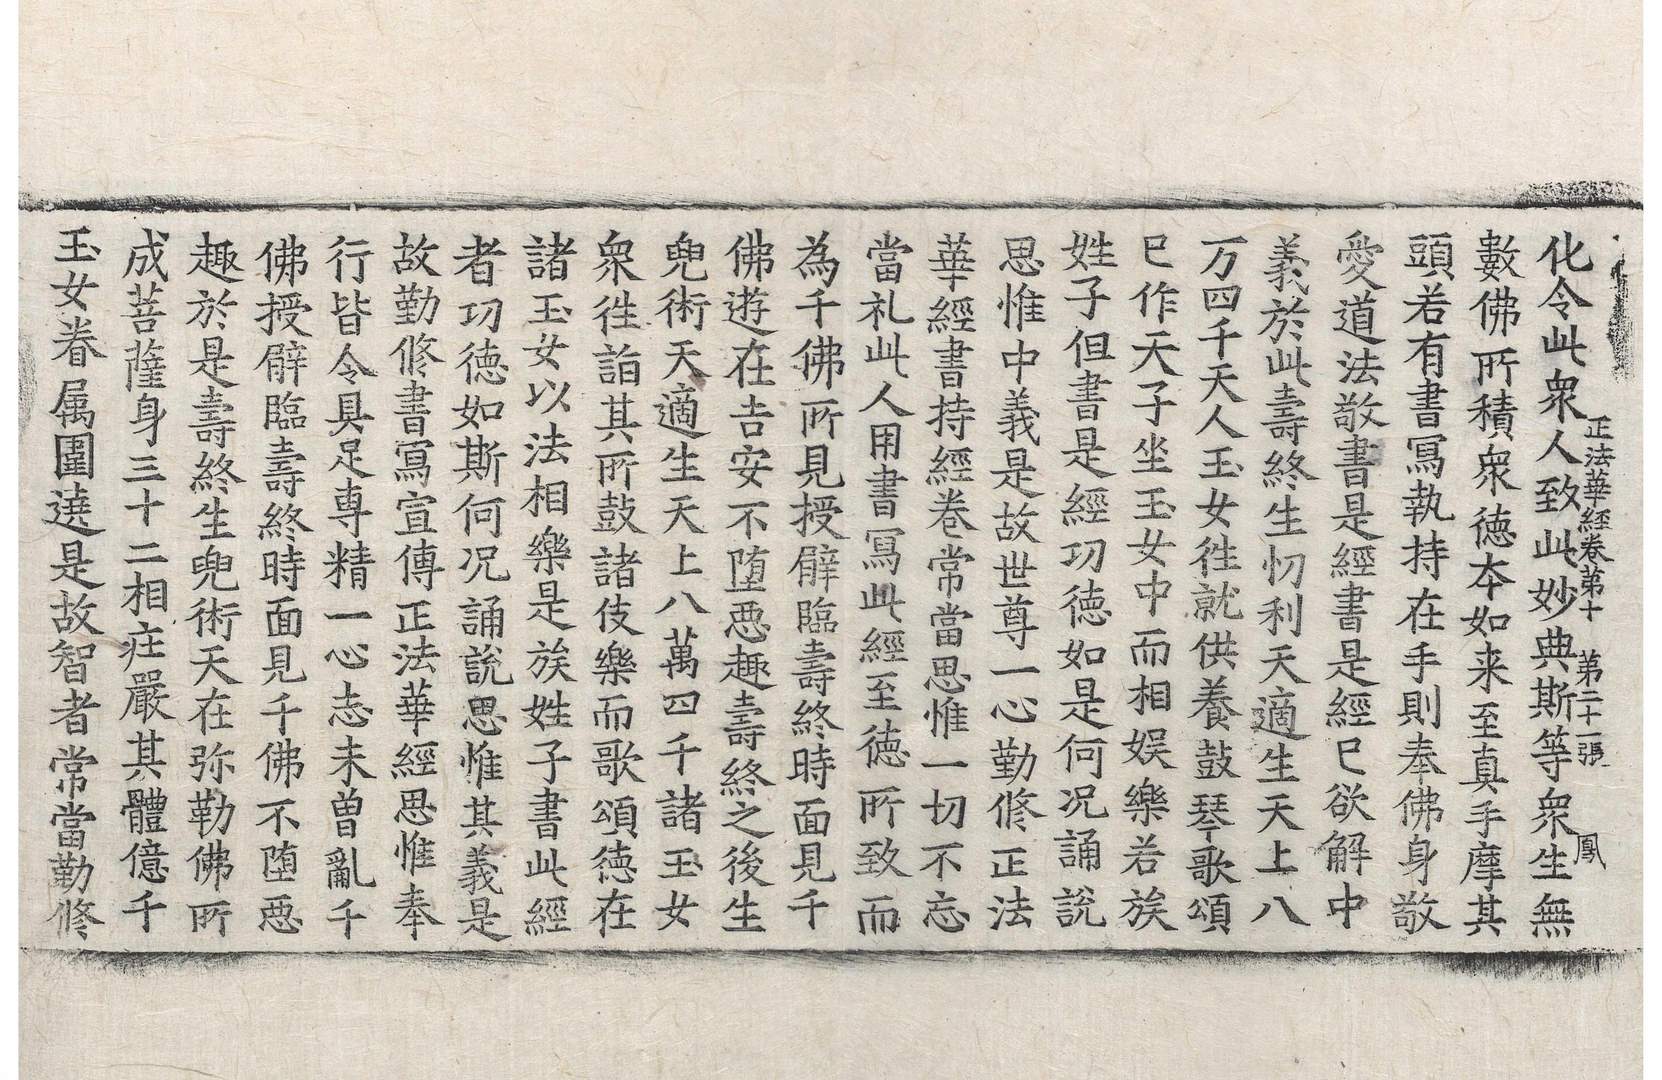 正法華經卷第十　第二十一張　鳳
化令此衆人致此妙典斯等衆生無
數佛所積衆德夲如来至真手摩其
頭若有書寫執持在手則奉佛身敬
愛道法敬書是經書是經已欲解中
義於此壽終生忉利天適生天上八
万四千天人玉女徃就供養鼓琴歌頌
已作天子坐玉女中而相娛樂若族
姓子但書是經功德如是何况誦說
思惟中義是故世尊一心勤修正法
華經書持經卷常當思惟一切不忘
當礼此人用書寫此經至德所致而
為千佛所見授臂臨壽終時面見千
佛遊在吉安不墮惡趣壽終之後生
兜術天適生天上八萬四千諸玉女
衆徃詣其所鼓諸伎樂而歌頌德在
諸玉女以法相樂是族姓子書此經
者功德如斯何况誦說思惟其義是
故勤修書寫宣傳正法華經思惟奉
行皆令具足専精一心志未曽亂千
佛授臂臨壽終時面見千佛不墮惡
趣於是壽終生兜術天在弥勒佛所
成菩薩身三十二相庄嚴其體億千
玉女眷属圍遶是故智者常當勤修